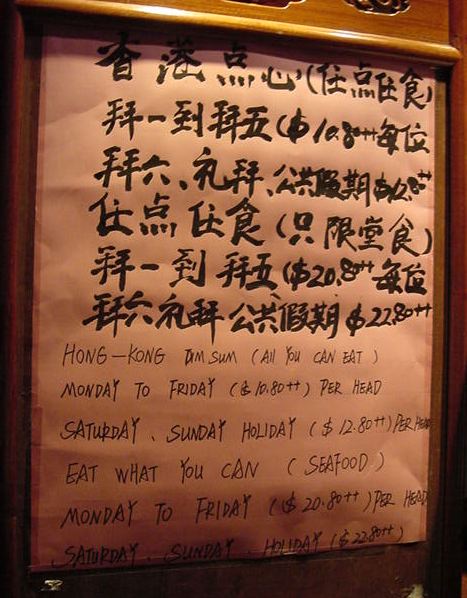 香港点心(任点任食)
拜一到拜五($10.80++每位
拜六、礼拜、公共假期$12.80++
任点任食(只限堂食)
拜一到拜五($20.80++每位
拜六礼拜公共假期$22.80++
HONG-KONG DIM SUM (ALL YOU CAN EAT)
MONDAY TO FRIDAY ($10.80++) PER HEAD
SATURDAY、SUNDAY HOLIDAY ($12.80++) PER HEAD
EAT WHAT YOU CAN (SEAFOOD)
MONDAY TO FRIDAY ($20.80++) PER HEAD
SATURDAY、SUNDAY、HOLIDAY ($22.80++)